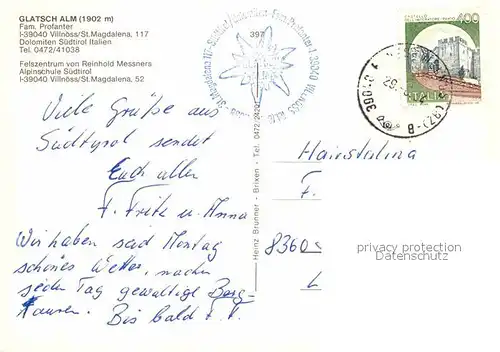 GLATSCH ALM (1902 m)
Fam. Profanter
I-39040 Villnöss/St.Magdalena, 117
Dolomiten Südtirol Italien
Tel. 0472/41038
Felszentrum von Reinhold Messners
Alpinschule Südtirol
I-39040 Villnöss/St.Magdalena, 52
397
ITALIA
400
Viele Grüße aus
Südtyrol sendet
Euch allen
F. Fritz u. Anna
Wir haben seid Montag
schönes Wetter, machen
jeden Tag gewaltige Berg-
touren. Bis bald F. F.
Heinz Brunner - Brixen - Tel. 0472/2420
F.
8360
L
privacy protection
Datenschutz